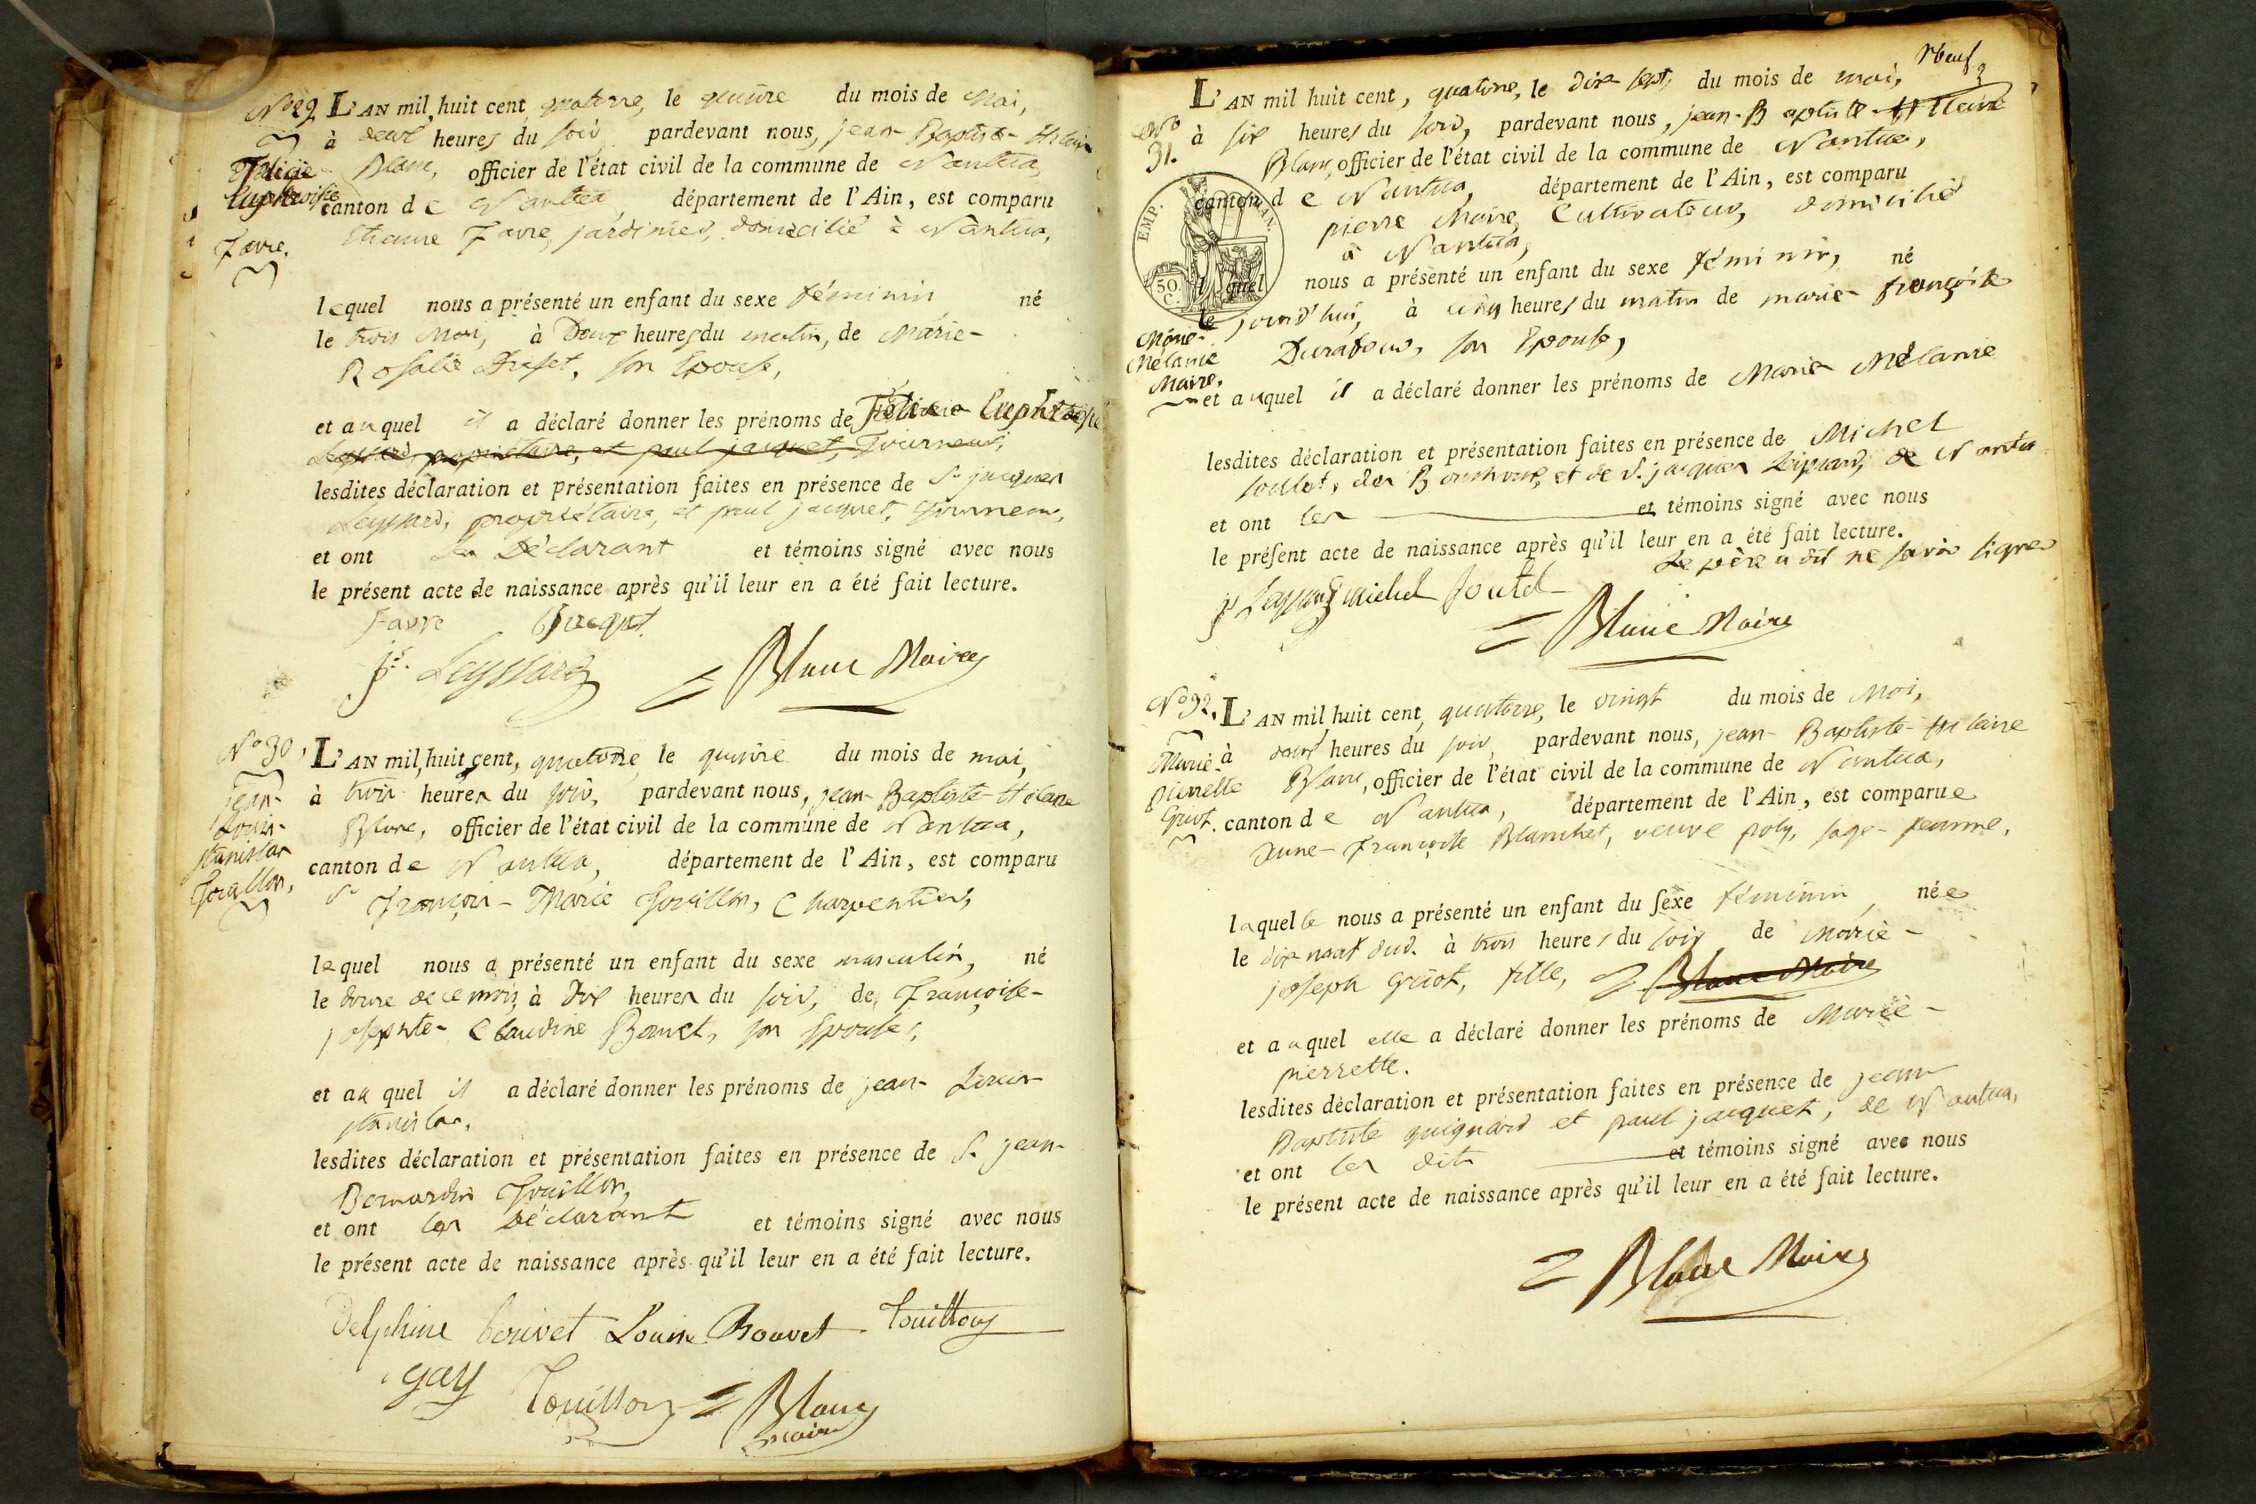 N.o 29.
Felicie
Euphrosine
Favre.
L'AN mil huit cent quatorze, le quinze du mois de Mai,
à deux heures du soir, pardevant nous, jean-Baptiste-Hilaire
Blanc, officier de l'état civil de la commune de Nantua,
canton de Nantua, département de l'Ain, est comparu
Etienne Favre, jardinier, domicilié à Nantua,
lequel nous a présenté un enfant du sexe féminin né
le trois Mai, à Deux heures du matin, de Marie-
Rosalie, son Epouse,
et auquel il a déclaré donner les prénoms de Felicie Euphrosine
Leyssard, propriétaire, et paul jacquet, Tourneur,
lesdites déclaration et présentation faites en présence de S.r jacques
Leyssard, propriétaire, et paul jacquet, Tourneur,
et ont le Déclarant et témoins signé avec nous
le présent acte de naissance après qu'il leur en a été fait lecture.
Favre Jacquet
j.s Leyssard Blanc Maire
N.o 30.
jean-
Louis-
stanislas
Touillon,
L'AN mil huit cent, quatorze, le quinze du mois de mai,
à trois heures du soir, pardevant nous, jean-Baptiste-Hilaire
Blanc, officier de l'état civil de la commune de Nantua,
canton de Nantua, département de l'Ain, est comparu
S.r François-Marie Touillon, Charpentier,
lequel nous a présenté un enfant du sexe masculin, né
le douze de ce mois, à Dix heures du soir, de Françoise-
josephte-Claudine, son Epouse,
et auquel il a déclaré donner les prénoms de jean-Louis-
stanislas,
lesdites déclaration et présentation faites en présence de S.r jean-
Bernardin Touillon,
et ont les Déclarant et témoins signé avec nous
le présent acte de naissance après qu'il leur en a été fait lecture.
Delphine bouvet Louise Bouvet Touillon
gay Touillon Blanc
maire
N.o
31.
Marie-
Mélanie
Maire.
EMP. FRAN.
50.
C.
L'AN mil huit cent, quatorze, le dix sept, du mois de mai,
à six heures du soir, pardevant nous, jean-Baptiste-Hilaire
Blanc, officier de l'état civil de la commune de Nantua,
canton de Nantua, département de l'Ain, est comparu
pierre Maire, Cultivateur, domicilié
à Nantua,
lequel nous a présenté un enfant du sexe féminin, né
le jourd'hui, à cinq heures du matin de marie-françoise
Durafour, son Epouse,
et auquel il a déclaré donner les prénoms de Marie Mélanie
lesdites déclaration et présentation faites en présence de Michel
et de S.r jacques Leyssard, de Nantua
et ont les et témoins signé avec nous
le présent acte de naissance après qu'il leur en a été fait lecture.
Le père a dit ne savoir signer
j.s Leyssard michel
Blanc Maire
N.o 32.
Marie-
pierrette
Guiot.
L'AN mil huit cent, quatorze, le vingt du mois de Mai,
à deux heures du soir, pardevant nous, jean-Baptiste-Hilaire
Blanc, officier de l'état civil de la commune de Nantua,
canton de Nantua, département de l'Ain, est comparue
anne-Françoise Blanchet, veuve poly, sage-femme,
laquelle nous a présenté un enfant du sexe féminin, née
le dix neuf dud. à trois heures du soir, de Marie-
joseph Guiot, fille, Blanc Maire
et auquel elle a déclaré donner les prénoms de Marie-
pierrette.
lesdites déclaration et présentation faites en présence de jean
Baptiste guignard et paul jacquet, de Nantua,
et ont les dits et témoins signé avec nous
le présent acte de naissance après qu'il leur en a été fait lecture.
Blanc Maire